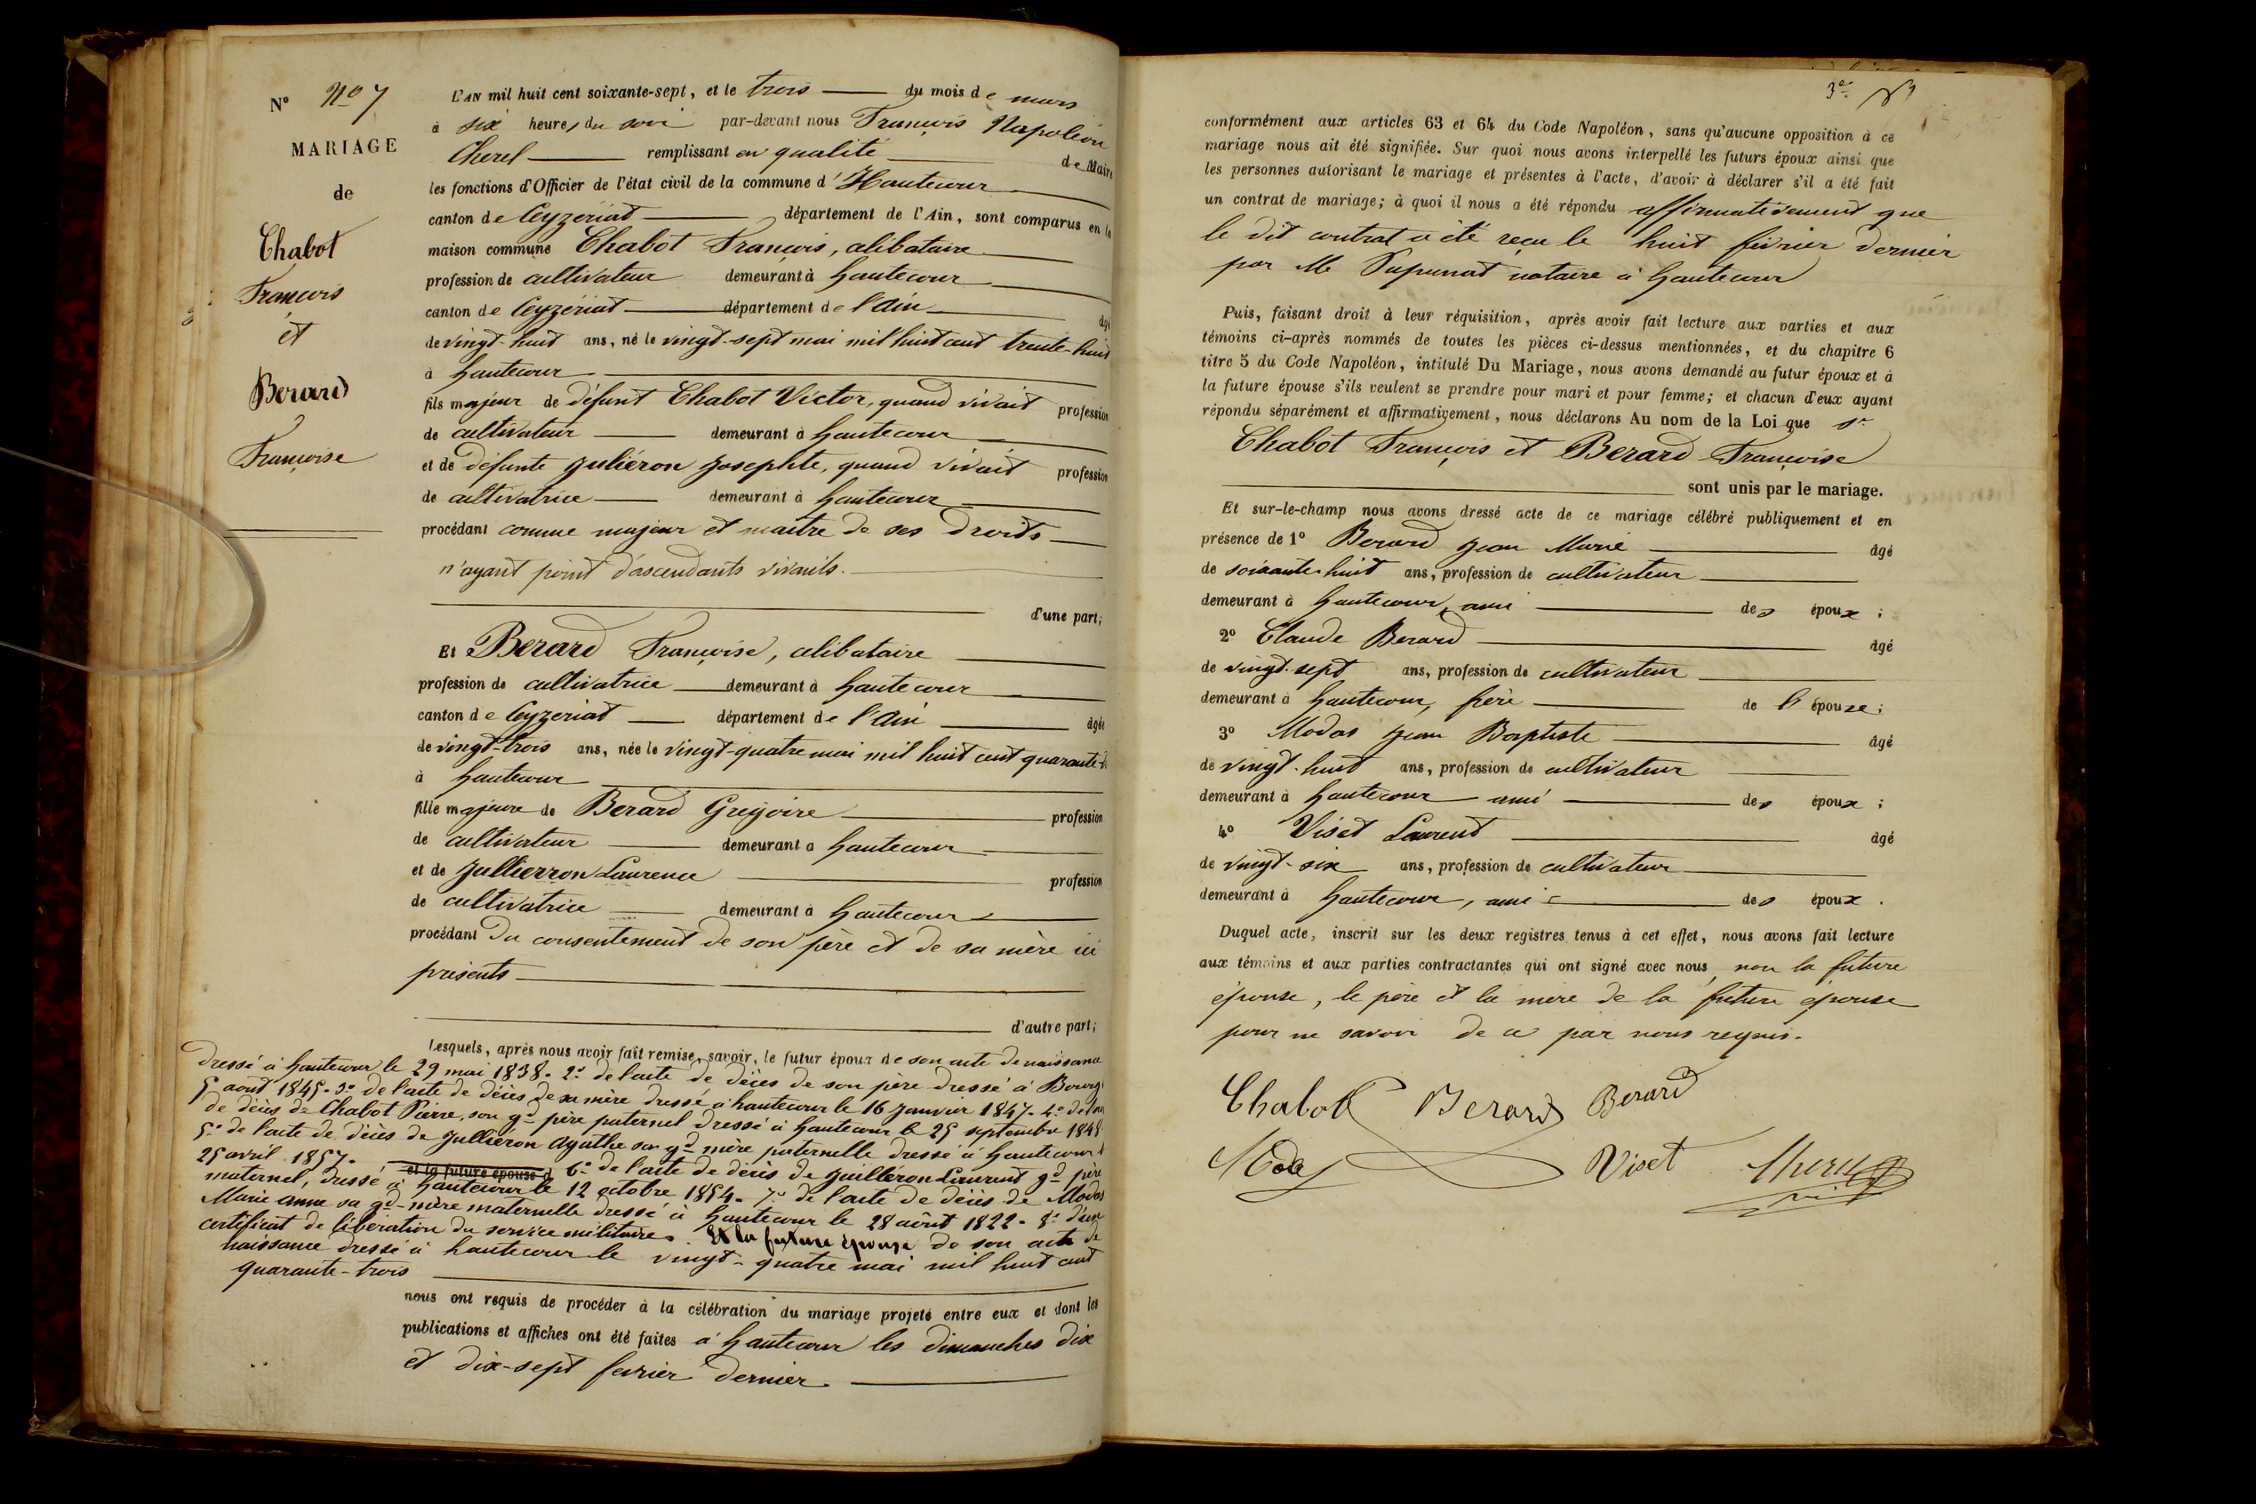 N° No 7
MARIAGE
de
Chabot
François
et
Berard
Françoise
L'AN mil huit cent soixante-sept, et le trois du mois de mars
à six heures du soir par-devant nous François Napoléon
Cherel remplissant en qualité de Maire
les fonctions d'Officier de l'état civil de la commune d'Hautecour
canton de Ceyzeriat département de l'Ain, sont comparus en la
maison commune Chabot François, célibataire
profession de cultivateur demeurant à hautecour
canton de Ceyzériat département de l'Ain âgé
de vingt-huit ans, né le vingt-sept mai mil huit cent trente-huit
à hautecour
fils majeur de défunt Chabot Victor, quand vivait profession
de cultivateur demeurant à hautecour
et de défunte Juliéron Josephte, quand vivait profession
de cultivatrice demeurant à hautecour
procédant comme majeur et maitre de ses droits
n'ayant point d'ascendants vivants.
d'une part;
Et Berard Françoise, célibataire
profession de cultivatrice demeurant à hautecour
canton de Ceyzeriat département de l'Ain âgée
de vingt-trois ans, née le vingt-quatre mai mil huit cent quarante-
à hautecour
fille majeure de Berard Gregoire profession
de cultivateur demeurant à hautecour
et de Jullierron Laurence profession
de cultivatrice demeurant à hautecour
procédant du consentement de son père et de sa mère ici
présents
d'autre part;
Lesquels, après nous avoir fait remise, savoir, le futur époux de son acte de naissance
dressé à hautecour le 29 mai 1838. 2° de l'acte de décès de son père dressé à Bourg
5 août 1845. 3° de l'acte de décès de sa mère dressé à hautecour le 16 janvier 1847. 4° de
de décès de Chabot Pierre, son gd père paternel dressé à hautecour le 25 septembre 1848
5° de l'acte de décès de Julliéron Agathe sa gd mère paternelle dressé à hautecour
25 avril 1857. et la future épouse d 6° de l'acte de décès de Juilléron Laurent gd père
maternel, dressé à hautecour le 12 octobre 1854. 7° de l'acte de décès de Modas
Marie Anne sa gd-mère maternelle dressé à hautecour le 28 août 1822. 8° d'un
certificat de libération du service militaire. Et la future épouse de son acte de
naissance dressé à hautecour le vingt-quatre mai mil huit cent
quarante-trois
nous ont requis de procéder à la célébration du mariage projeté entre eux et dont les
publications et affiches ont été faites à hautecour les dimanches dix
et dix-sept fevrier dernier.
3e
conformément aux articles 63 et 64 du Code Napoléon, sans qu'aucune opposition à ce
mariage nous ait été signifiée. Sur quoi nous avons interpellé les futurs époux ainsi que
les personnes autorisant le mariage et présentes à l'acte, d'avoir à déclarer s'il a été fait
un contrat de mariage; à quoi il nous a été répondu affirmativement que
le dit contrat a été reçu le huit février dernier
par Me notaire à hautecour
Puis, faisant droit à leur réquisition, après avoir fait lecture aux parties et aux
témoins ci-après nommés de toutes les pièces ci-dessus mentionnées, et du chapitre 6
titre 5 du Code Napoléon, intitulé Du Mariage, nous avons demandé au futur époux et à
la future épouse s'ils veulent se prendre pour mari et pour femme; et chacun d'eux ayant
répondu séparément et affirmativement, nous déclarons Au nom de la Loi que
Chabot François et Berard Françoise
sont unis par le mariage.
Et sur-le-champ nous avons dressé acte de ce mariage célébré publiquement et en
présence de 1° Berard Jean Marie âgé
de soixante-huit ans, profession de cultivateur
demeurant à hautecour, ami des époux;
2° Claude Berard âgé
de vingt-sept ans, profession de cultivateur
demeurant à hautecour, frère de l'épouse;
3° Modas Jean Baptiste âgé
de vingt-huit ans, profession de cultivateur
demeurant à hautecour ami des époux;
4° Viset Laurent âgé
de vingt-six ans, profession de cultivateur
demeurant à hautecour, ami des époux.
Duquel acte, inscrit sur les deux registres tenus à cet effet, nous avons fait lecture
aux témoins et aux parties contractantes qui ont signé avec nous, non la future
épouse, le père et la mère de la future épouse
pour ne savoir de ce par nous requis.
Chabot Berard Berard
Modas Viset Cherel